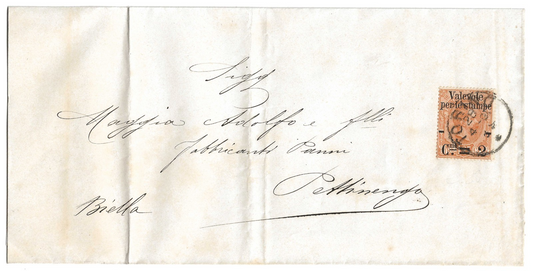 Sigg
Maggia Adolfo e flli
Fabbricanti Panni
Pettinengo
Biella
Valevole
per le stampe
Cmi 2